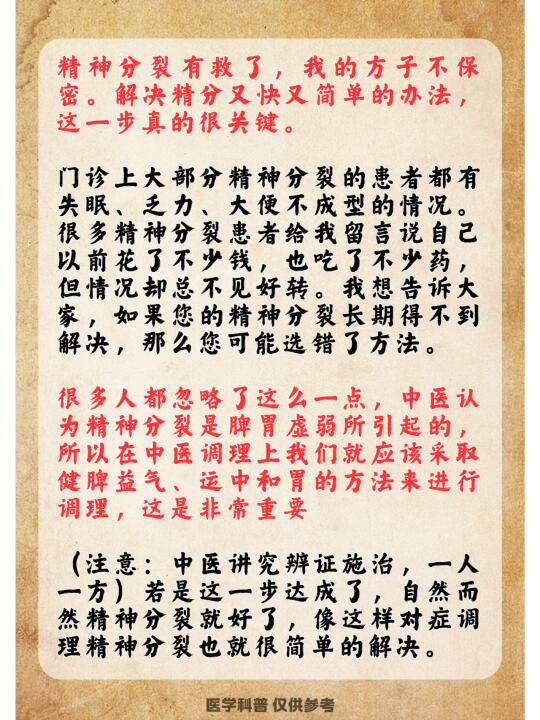 精神分裂有救了，我的方子不保
密。解决精分又快又简单的办法，
这一步真的很关键。
门诊上大部分精神分裂的患者都有
失眠、乏力、大便不成型的情况。
很多精神分裂患者给我留言说自己
以前花了不少钱，也吃了不少药，
但情况却总不见好转。我想告诉大
家，如果您的精神分裂长期得不到
解决，那么您可能选错了方法。
很多人都忽略了这么一点，中医认
为精神分裂是脾胃虚弱所引起的，
所以在中医调理上我们就应该采取
健脾益气、运中和胃的方法来进行
调理，这是非常重要
（注意：中医讲究辨证施治，一人
一方）若是这一步达成了，自然而
然精神分裂就好了，像这样对症调
理精神分裂也就很简单的解决。
医学科普 仅供参考